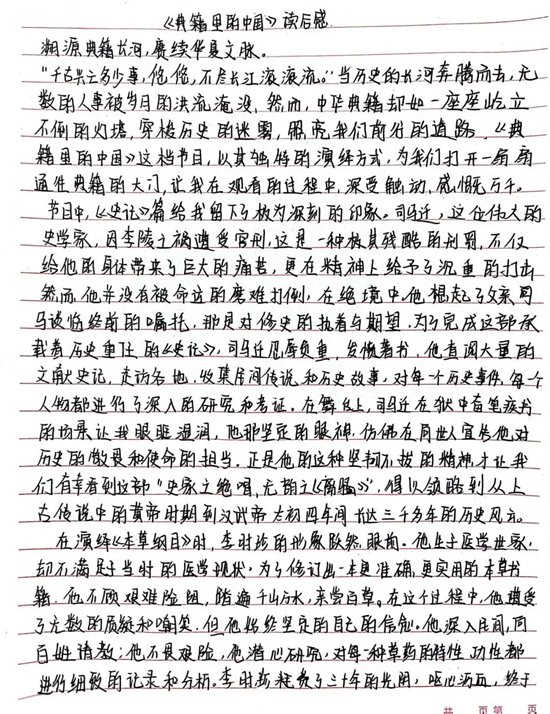 《典籍里的中国》读后感.
溯源典籍长河,赓续华夏文脉。
"千古兴亡多少事,悠悠,不尽长江滚滚流。"当历史的长河奔腾而去,无
数的人事被岁月的洪流淹没,然而,中华典籍却如一座座屹立
不倒的灯塔,穿梭历史的迷雾,照亮我们前行的道路.《典
籍里的中国》这档节目,以其独特的演绎方式,为我们打开一扇扇
通往典籍的大门,让我在观看的过程中,深受触动,感慨万千。
节目中,《史记》篇给我留下了极为深刻的印象。司马迁,这位伟大的
史学家,因李陵之祸遭受宫刑,这是一种极其残酷的刑罚,不仅
给他的身体带来了巨大的痛苦,更在精神上给予了沉重的打击
然而他并没有被命运的磨难打倒,在绝境中,他想起了父亲司
马谈临终前的嘱托,那是对修史的执着与期望.为了完成这部承
载着历史重任的《史记》,司马迁忍辱负重,发愤著书,他查阅大量的
文献史记,走访各地,收集民间传说和历史故事,对每个历史事件,每个
人物都进行了深入的研究和考证。在舞台上,司马迁在狱中奋笔疾书
的场景让我眼眶湿润,他那坚定的眼神,仿佛在向世人宣告他对
历史的敬畏和使命的担当.正是他的这种坚韧不拔的精神,才让我
们有幸看到这部"史家之绝唱,无韵之《离骚》",得以领略到从上
古传说中的黄帝时期到汉武帝太初四年间长达三千多年的历史风云。
在演绎《本草纲目》时,李时珍的形象跃然眼前。他生于医学世家,
却不满足于当时的医学现状,为了修订出一本更准确,更实用的本草书
籍,他不顾艰难险阻,踏遍千山万水,亲尝百草。在这个过程中,他遭受
了无数的质疑和嘲笑.但他始终坚定的自己的信念。他深入民间,向
百姓请教;他不畏艰险,他潜心研究,对每一种草药的特性,功性都
进行细致的记录和分析。李时珍耗费了三十年的光阴,呕心沥血,终于
共 页 第 页